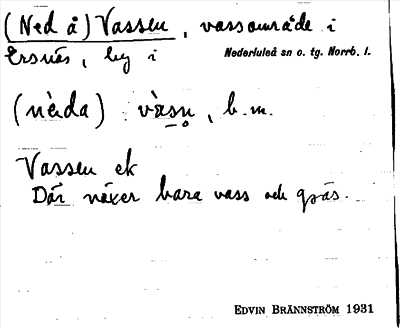 (Ned å) Vassen, vassområde i
Ersnäs, by i Nederluleå sn o. tg. Norrb. l.
(nèda) vàsn̥, b. m.
Vassen ek
Där växer bara vass och gräs.
EDVIN BRÄNNSTRÖM 1931